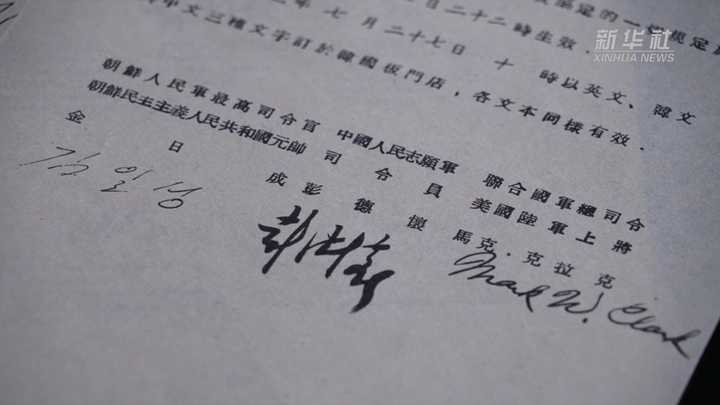 定的一切規定
日二十二時生效．
新华社
XINHUA NEWS
年 七 月 二十七日 十 時以英文、韓文
中文三種文字訂於韓國板門店，各文本同樣有效．
朝鮮人民軍最高司令官
朝鮮民主主義人民共和國元帥
金 日 成
김일성
中國人民志願軍
司 令 員
彭 德 懷
彭德懷
聯合國軍總司令
美國陸軍上將
馬克·克拉克
Mark W. Clark